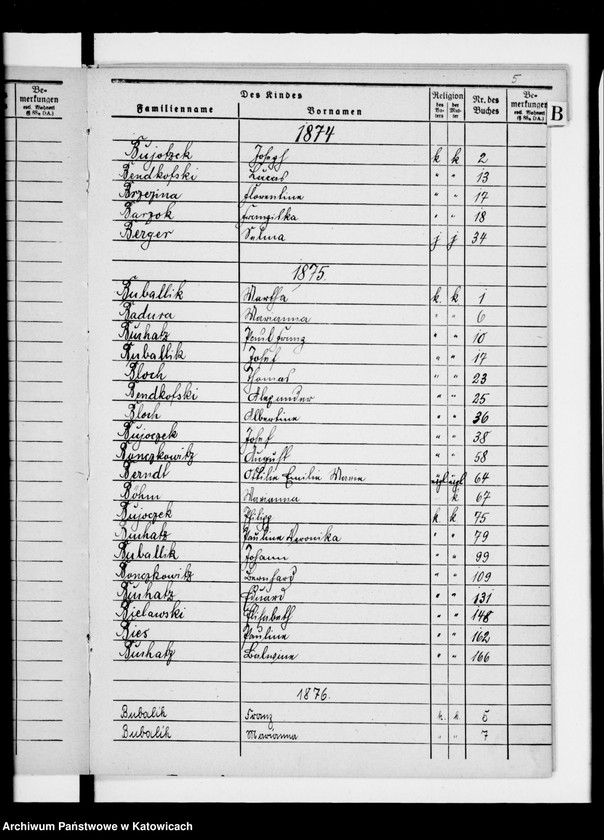 5
Be-
merkungen
Des Kindes
Religion
Nr. des
Buches
Be-
merkungen
Familienname
Vornamen
des
Va-
ters
der
Mut-
ter
B
1874
Bujotzek Joseph k k 2
Bendkofski Lucas " " 13
Brzezina Florentine " " 17
Barzok Franziska " " 18
Berger Salma j j 34
1875.
Buballik Martha k. k 1
Badura Marianna " " 6
Buchatz Paul Franz " " 10
Buballik Josef " " 17
Bloch Thomas " " 23
Bendkofski Alexander " " 25
Bloch Albertine " " 36
Bujoczek Josef " " 38
Bonczkowitz August " " 58
Berndt Ottilie Emilie Marie evgl evgl 64
Böhm Marianna k 67
Bujoczek Philipp k. k 75
Buchatz Pauline Veronika " " 79
Buballik Johann " " 99
Bonczkowitz Bernhard " " 109
Buchatz Eduard " " 131
Bielawski Elisabeth " " 148
Bies Pauline " " 162
Buchatz Balwine " " 166
1876.
Bubalik Franz k. k. 5
Bubalik Marianna " " 7
Archiwum Państwowe w Katowicach